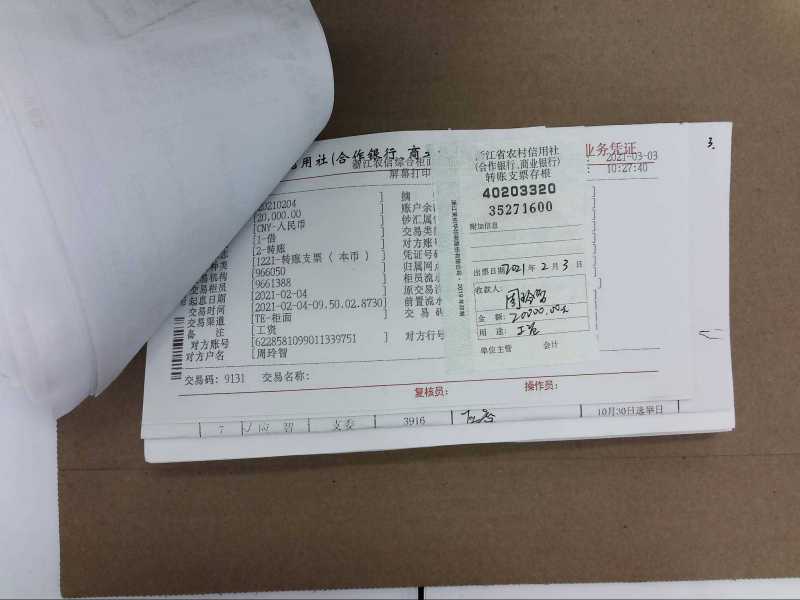 用社(合作银行、商
业务凭证
3.
浙江农信综合柜面
2021-03-03
屏幕打印
10:27:40
20210204
摘
[20,000.00
账户余
[CNY-人民币
钞汇属
[1-借
交易类
[2-转账
对方账
[1221-转账支票(本币)
凭证号码
种类
[966050
归属网点
机构
[9661388
柜员流水
交易柜员
[2021-02-04
原交易流
起息日期
[2021-02-04-09.50.02.8730]
前置流水
交易时间
[TE-柜面
交易码
交易渠道
[工资
备 注
[6228581099011339751]
对方行号
对方账号
[周玲智
对方户名
交易码: 9131 交易名称:
复核员: 操作员:
浙江省农村信用社
(合作银行、商业银行)
转账支票存根
40203320
35271600
附加信息
出票日期2021年2月3日
收款人:
周玲智
金 额: 20000.00元
用 途: 工资
单位主管 会计
7
智
支委
3916
10月30日选举日